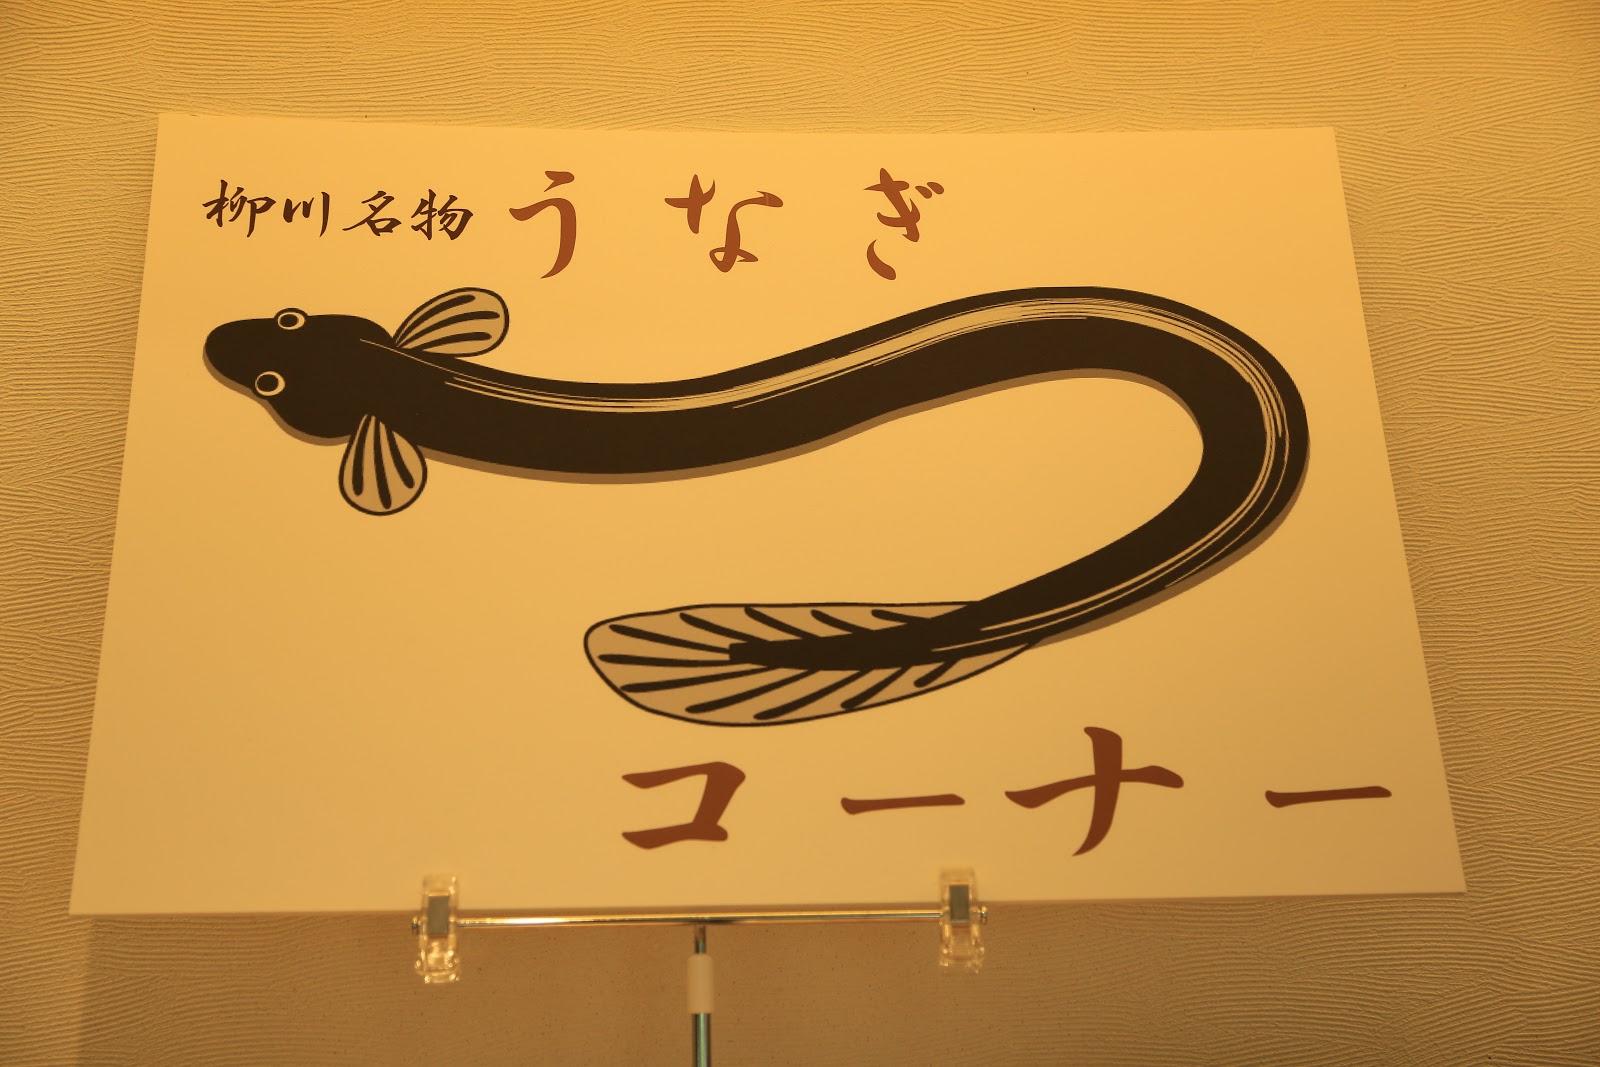 柳川名物 うなぎ
コーナー